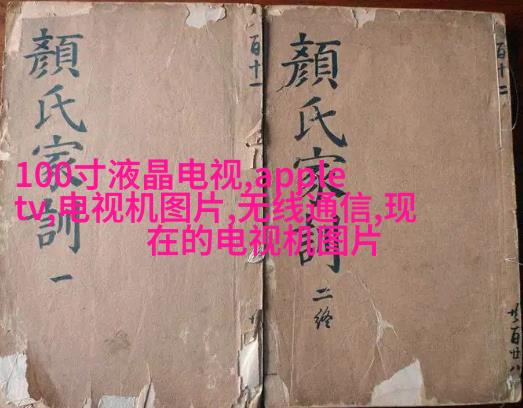 顏氏家訓
一
百十一
顏氏家訓
二終
百十二
100寸液晶电视,apple
tv,电视机图片,无线通信,现
在的电视机图片